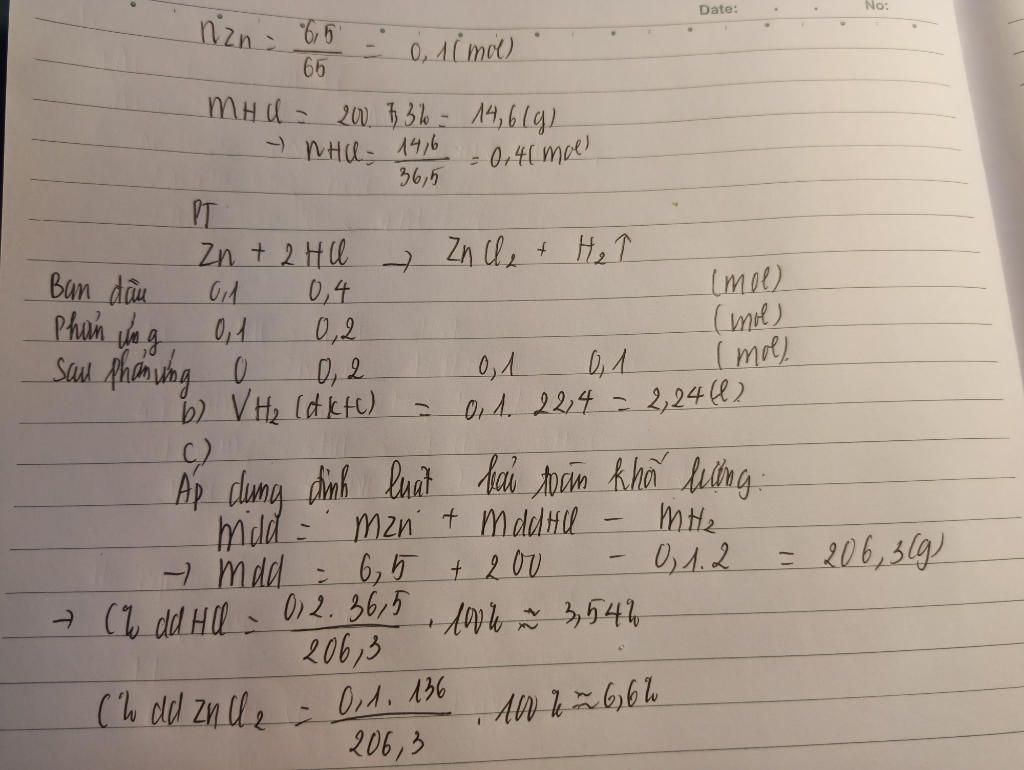 Date: No:
nZn = 6,5/65 = 0,1 (mol)
mHCl = 200. 7,3% = 14,6 (g)
→ nHCl = 14,6/36,5 = 0,4 (mol)
PT
Zn + 2HCl → ZnCl₂ + H₂↑
Ban đầu 0,1 0,4 (mol)
Phản ứng 0,1 0,2 (mol)
Sau phản ứng 0 0,2 0,1 0,1 (mol).
b) VH₂ (đktc) = 0,1. 22,4 = 2,24 (l)
c)
Áp dụng định luật bải toàn khối lượng:
mdd = mZn + mddHCl - mH₂
→ mdd = 6,5 + 200 - 0,1.2 = 206,3 (g)
→ C% dd HCl = 0,2. 36,5/206,3 . 100% ≈ 3,54%
C% dd ZnCl₂ = 0,1. 136/206,3 . 100% ≈ 6,6%